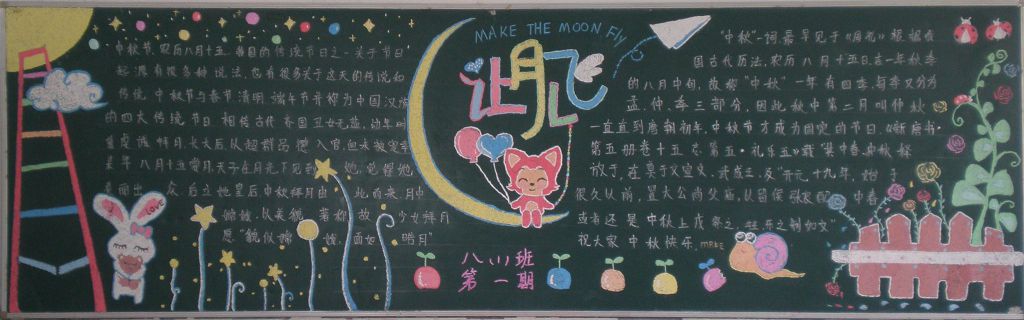 MAKE THE MOON FLY
让月飞
"中秋节,农历八月十五,我国的传统节日之一关于节日
起源有很多种说法,也有很多关于这天的传说和
传统 中秋节与春节清明、端午节并称为中国汉族
的四大传统节日.相传古代齐国丑女无盐,幼年时
曾虔诚拜月,长大后,以超群品德入宫,但未被宠幸
某年八月十五赏月,天子在月光下见到她,觉得她
美丽出众 后立她皇后中秋拜月由此而来.月中
嫦娥,以美貌著称 故少女拜月
愿"貌似嫦娥,面如皓月"
"中秋"一词,最早见于《周礼》根据我
国古代历法,农历八月十五日,在一年秋季
的八月中旬,故称"中秋"一年有四季,每季又分为
孟、仲、季三部分,因此秋中第二月叫仲秋
一直直到唐朝初年,中秋节才成为固定的节日.《新唐书·
第五册卷十五志第五·礼乐五》载"其中春、中秋释
奠于文宣王、武成王,及"开元十九年,始于
很久以前,置太公尚父庙,以留侯张良配
中春
或者还是中秋上戊祭之,牲乐之制如文
祝大家中秋快乐.
make
Love
八(1)班
第一期